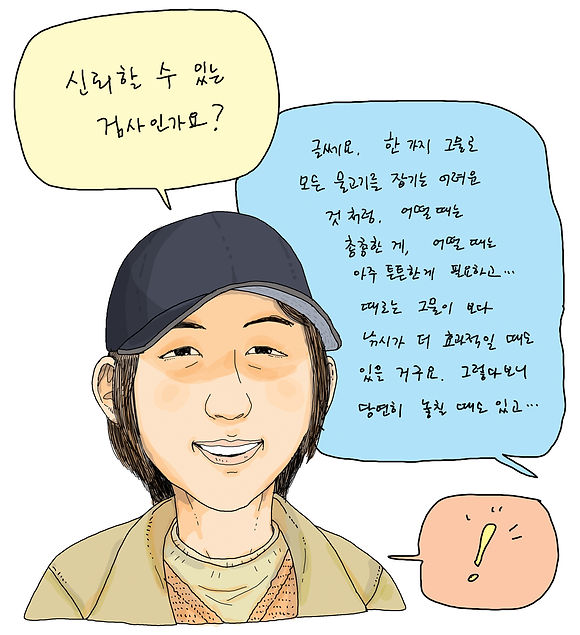 신뢰할 수 있는
검사인가요?
글쎄요. 한 가지 그물로
모든 물고기를 잡기는 어려운
것 처럼, 어떨 때는
촘촘한 게, 어떨 때는
아주 튼튼한게 필요하고...
때로는 그물이 보다
낚시가 더 효과적일 때도
있을 거구요. 그렇다보니
당연히 놓칠 때도 있고...
!